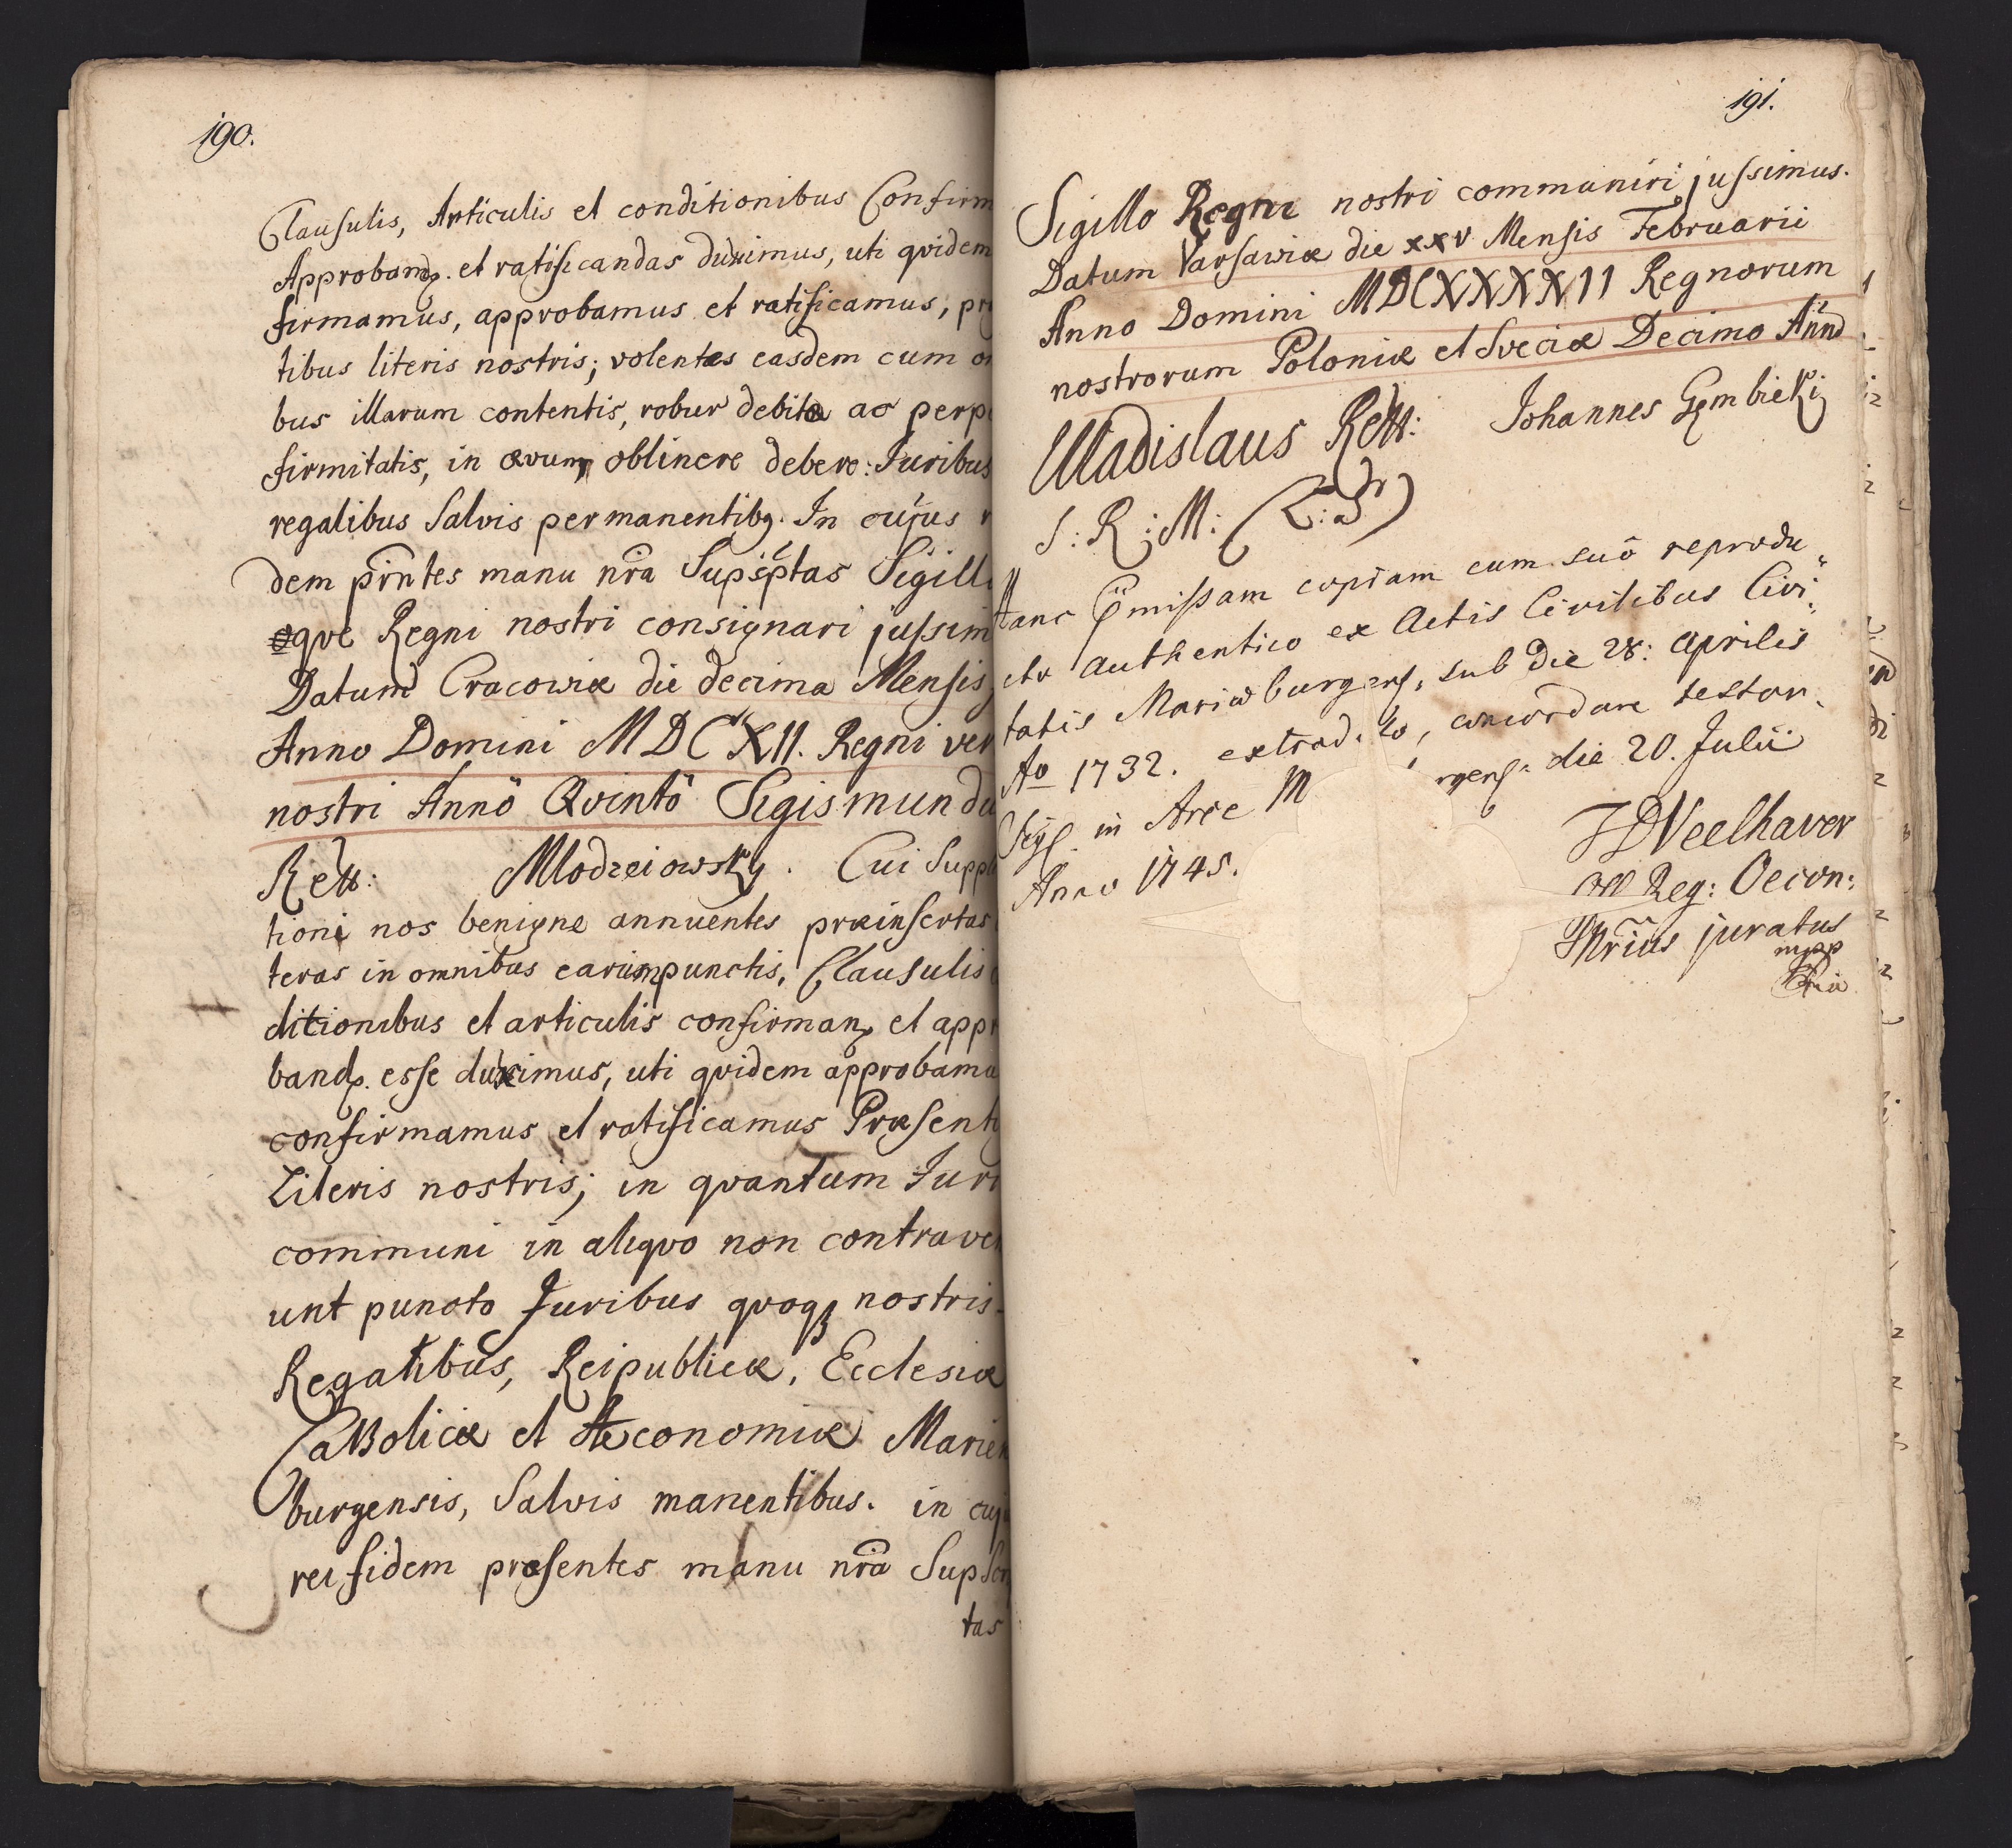 190.
Clausulis, Articulis et conditionibus Confirm
Approband. et ratificandas duximus, uti qvidem
firmamus, approbamus et ratificamus, pr
tibus literis nostris; volentes easdem cum o
bus illarum contentis, robur debita ac perp
firmitatis, in ævum oblinere debere: Juribus
regalibus Salvis permanentibg. In cujus r
dem prntes manu nra Supsptas Sigill
qve Regni nostri consignari jussim
Datum Cracowiæ die decima Mensis
Anno Domini MDCXII. Regni ver
nostri Annô Qvintô Sigismundu
Rex: Mlodzeiowsky. Cui Suppl
tioni nos benigne annuentes præinsertas
teras in omnibus earum punctis, Clausulis
ditionibus et articulis confirman et app
band. esse duximus, uti qvidem approbamu
confirmamus et ratificamus Præsent
Literis nostris; in qvantum Juri
communi in aliqvo non contrave
unt puncto Juribus qvoqz nostris
Regalibus, Reipublicæ, Ecclesiæ
Catholicæ et Æconomiæ Marien
burgensis, Salvis manentibus. in cuj
rei fidem præsentes manu nrâ Supscr
tas
191.
Sigillo Regni nostri communiri jussimus.
Datum Varsawiæ die xxv Mensis Februarii
Anno Domini MDCXXXXII Regnorum
nostrorum Poloniæ et Sveciæ Decimo Anno
Uladislaus Rex: Johannes Gembicki
S: R: M:
Hanc pmissam copiam cum suô reprodu
cto authentico ex Actis Civilibus Civi
tatis Mariæburgens, sub die 28: aprilis
Ao 1732. extrad. to, concordare testor.
in Arce M rgens: die 20. Julii
Anno 1745.
JDVeelhaver
Reg: Oecon:
juratus
mpp